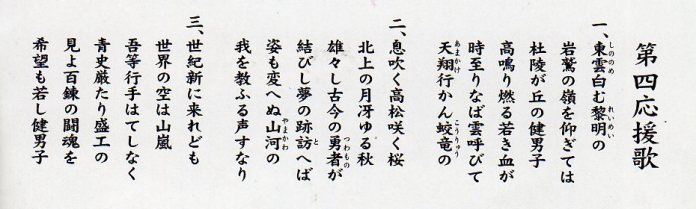 第四応援歌
一、東雲白む黎明の
岩鷲の嶺を仰ぎては
杜陵が丘の健男子
高鳴り燃る若き血が
時至りなば雲呼びて
天翔行かん蛟竜の
二、息吹く高松咲く桜
北上の月冴ゆる秋
雄々し古今の勇者が
結びし夢の跡訪へば
姿も変へぬ山河の
我を教ふる声すなり
三、世紀新に来れども
世界の空は山嵐
吾等行手はてしなく
青史厳たり盛工の
見よ百錬の闘魂を
希望も若し健男子
しののめ
れいめい
あまかけ
こうりゅう
つわもの
と
やまかわ